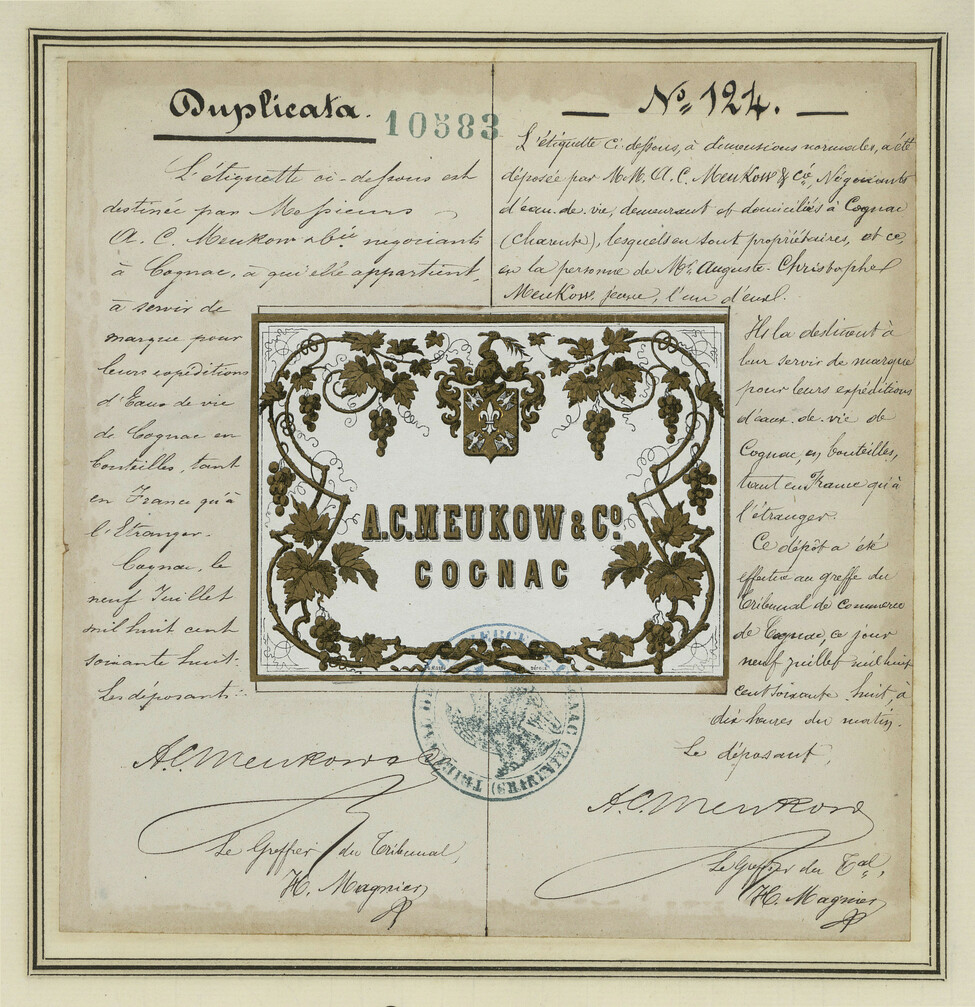 Duplicata.
10583
L'étiquette ci-dessous est
destinée par Messieurs
A. C. Meukow & Cie négociants
à Cognac, à qui elle appartient,
à servir de
marque pour
leurs expéditions
d'Eaux de vie
de Cognac en
bouteilles, tant
en France qu'à
l'Etranger.
Cognac, le
neuf Juillet
mil huit cent
soixante huit.
Les déposants:
A.C. Meukow & Co
Le Greffier du Tribunal,
H. Magnier
No 124.
L'étiquette ci-dessous, à dimensions normales, a été
déposée par M.M. A. C. Meukow & Co, Négociants
d'eau-de-vie, demeurant et domiciliés à Cognac
(Charente), lesquels en sont propriétaires, et ce,
en la personne de Mr. Auguste-Christophe
Meukow jeune, l'un d'eux.
Ils la destinent à
leur servir de marque
pour leurs expéditions
d'eaux-de-vie de
Cognac, en bouteilles,
tant en France qu'à
l'étranger.
Ce dépôt a été
effectué au greffe du
Tribunal de commerce
de Cognac ce jour
neuf juillet mil huit
cent soixante huit, à
dix heures du matin.
Le déposant,
A.C. Meukow
Le Greffier du Tal,
H. Magnier
A.C. MEUKOW & Co.
COGNAC
TRIBUNAL DE COMMERCE DE COGNAC (CHARENTE)